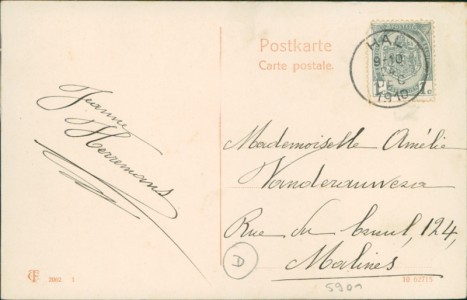 Postkarte
Carte postale.
HAL
9-10
DEC
1910
Jeanne
Herremans
Mademoiselle Amélie
Vanderauwera
Rue du Cruul, 124,
Malines
D
5901
3962
ID 62715